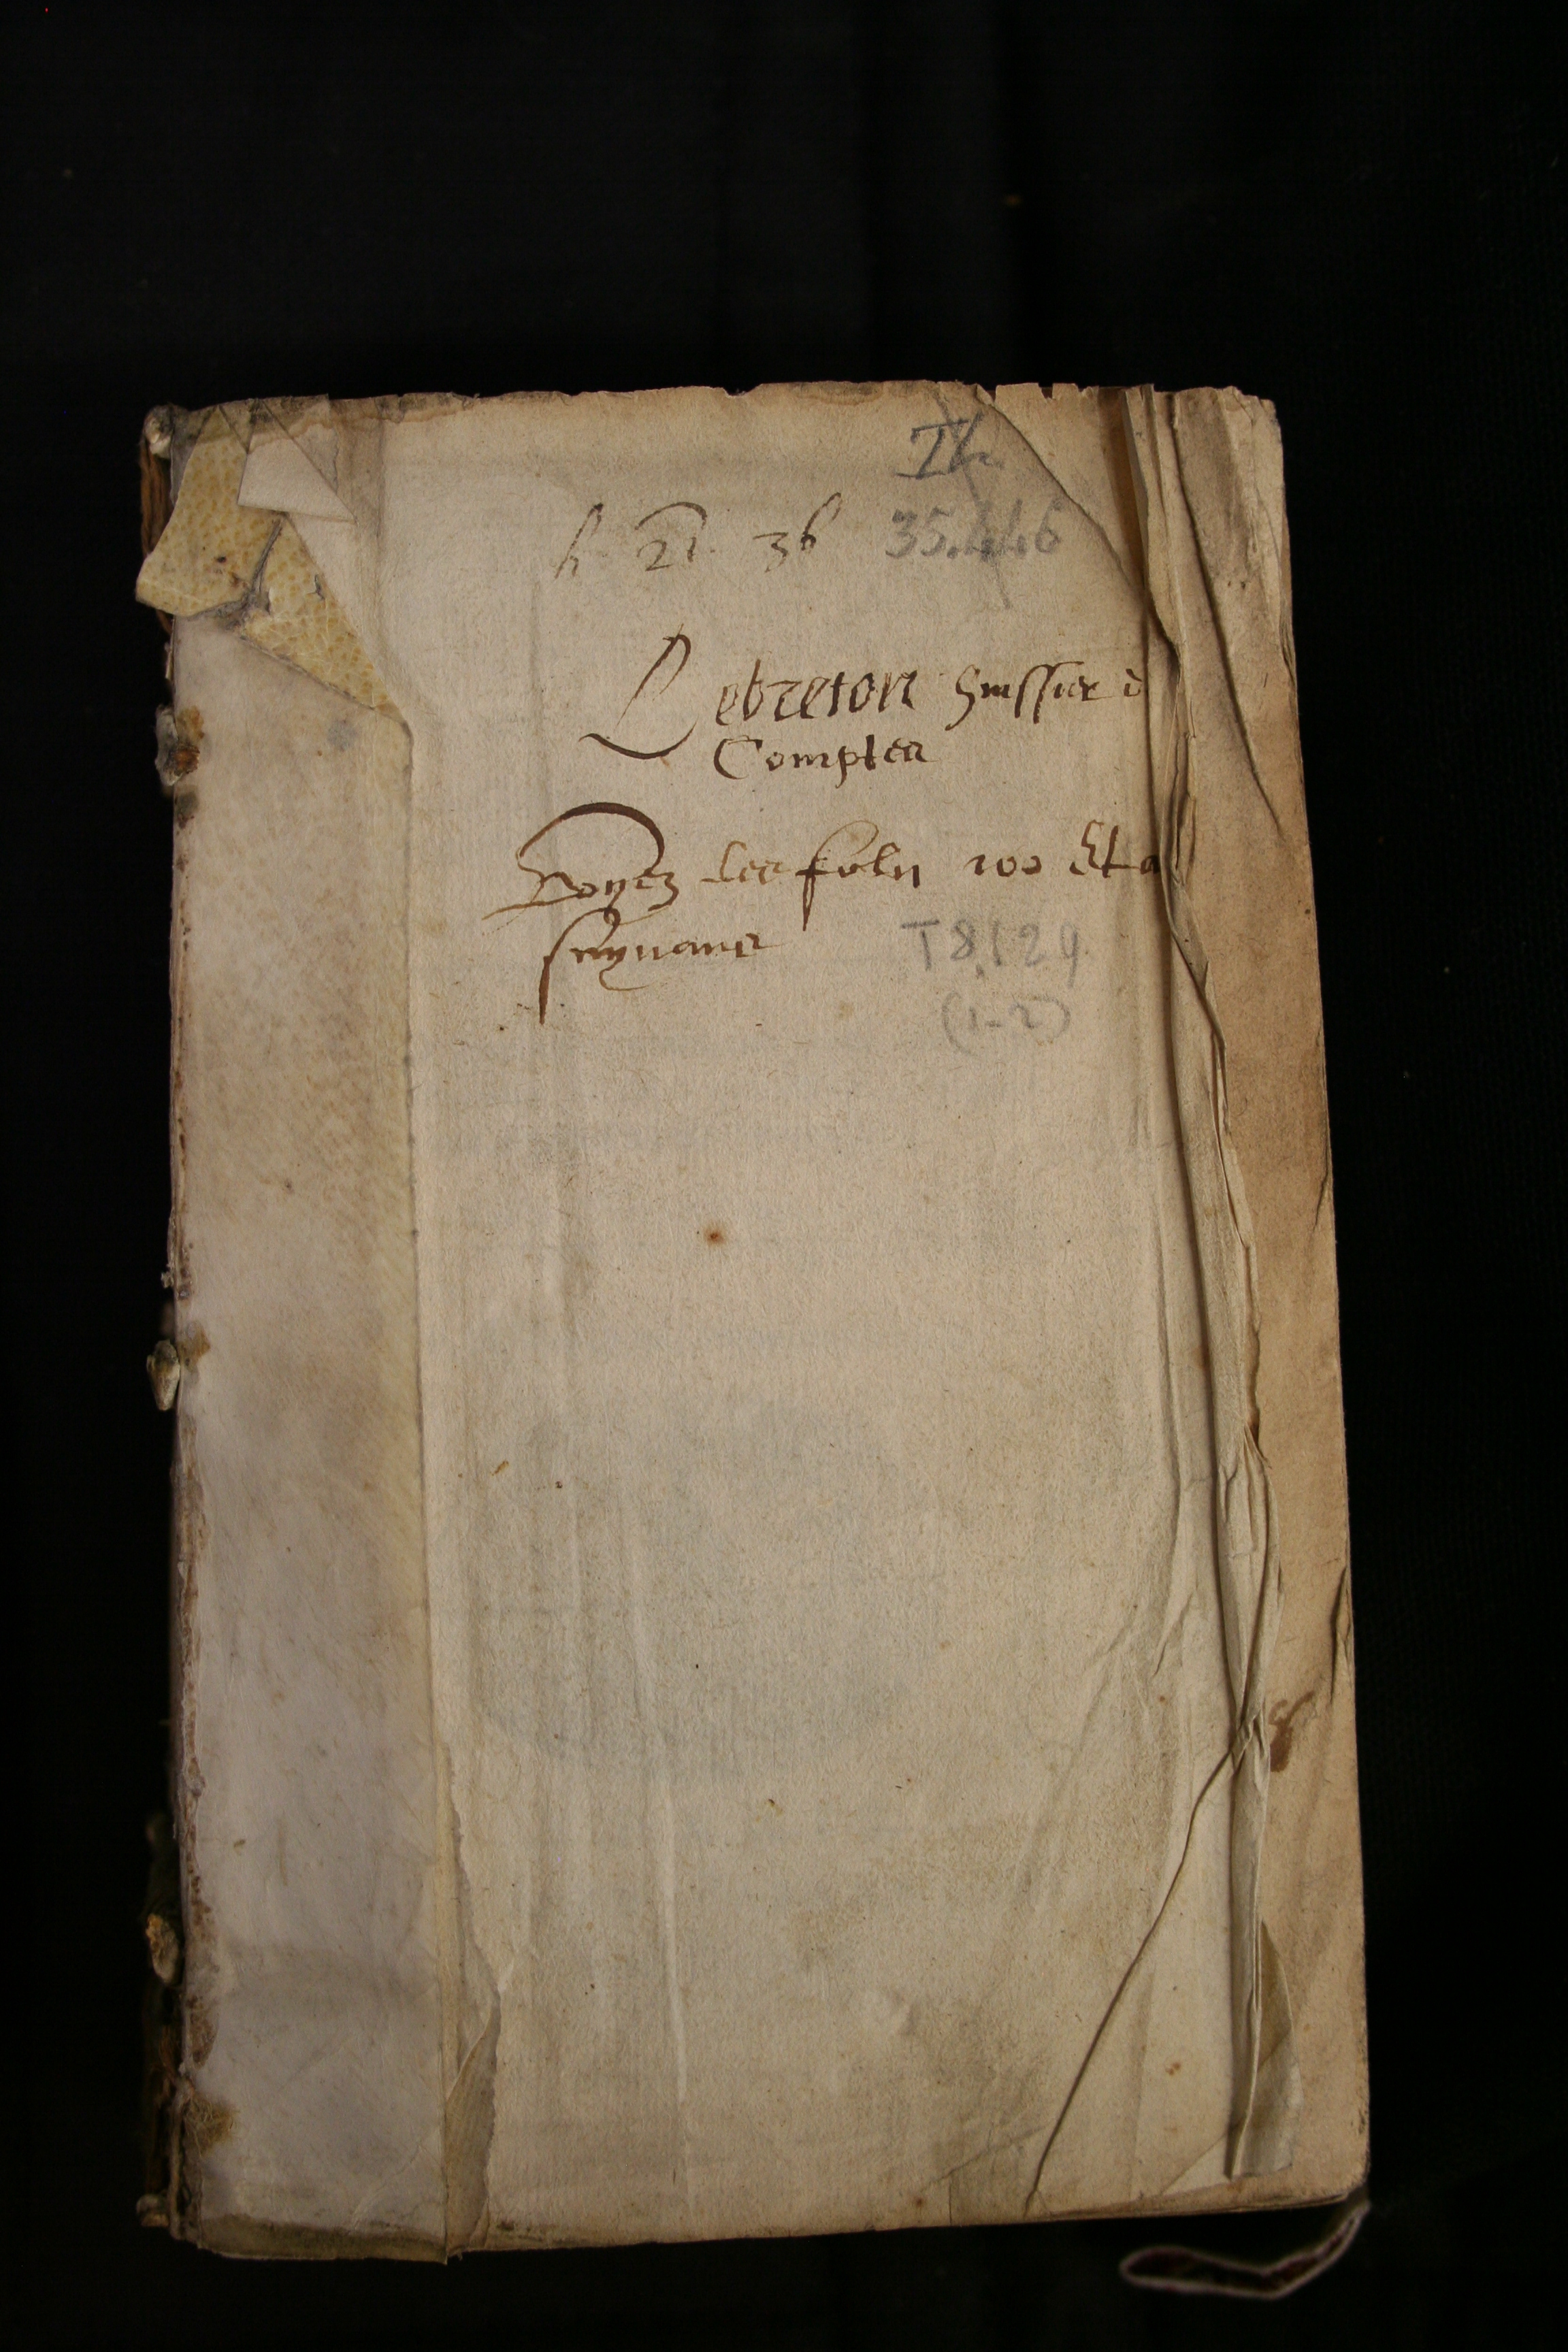 IX
h. 21. 36 35.446
Lebreton huissier d
Comptes
Voyez les folii 100 Et a
suyuans
T 8.129
(1-2)
8